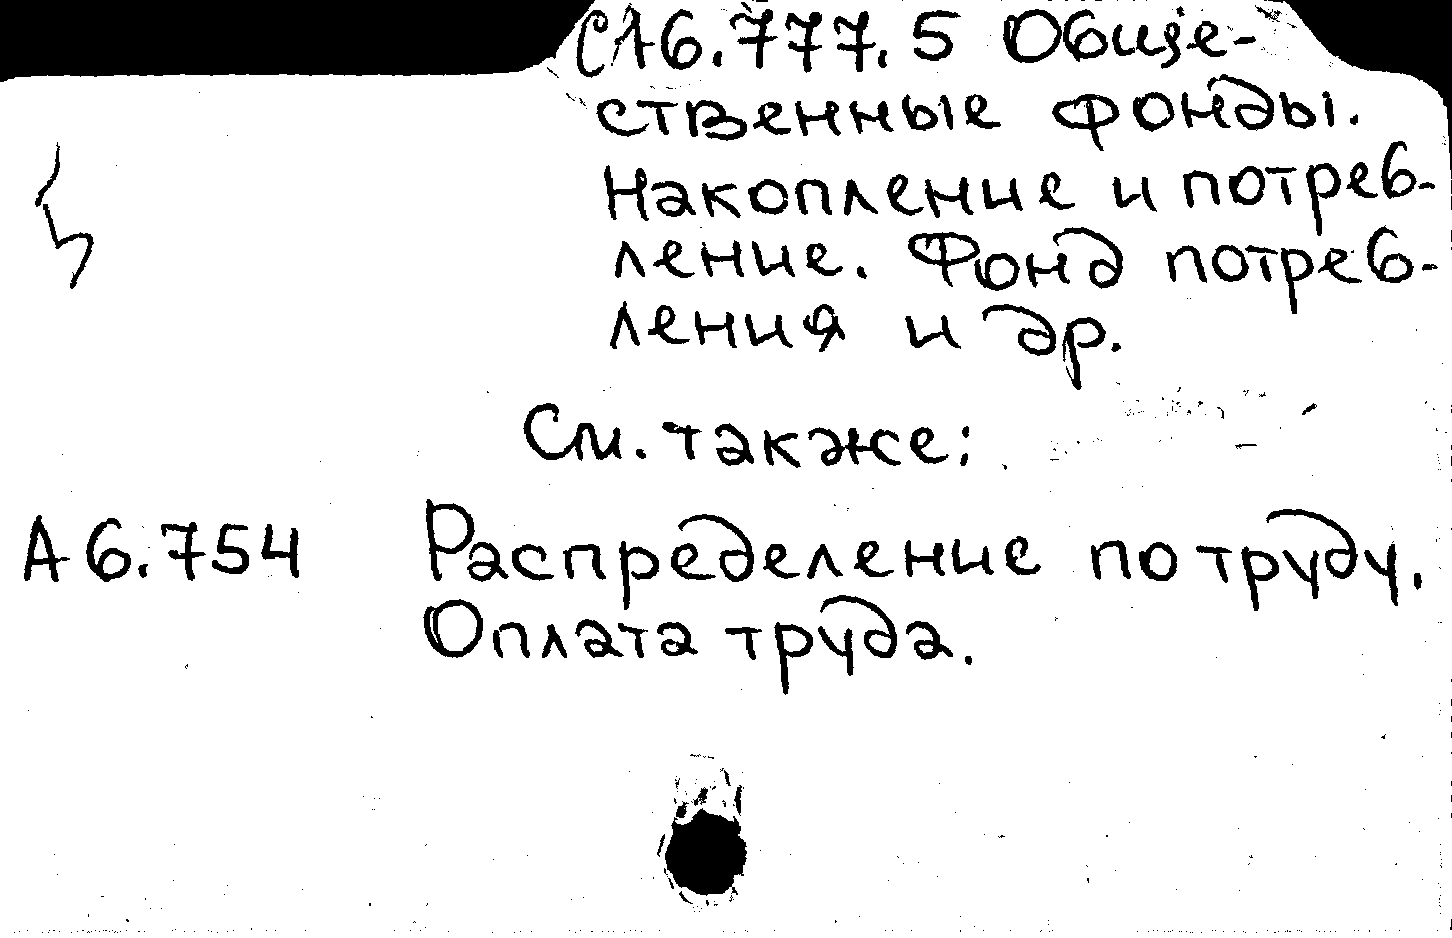 СА6.777.5 Обще-
ственные фонды.
Накопление и потреб-
ление. Фонд потреб-
ления и др.
См. также:
А6.754 Распределение по труду.
Оплата труда.